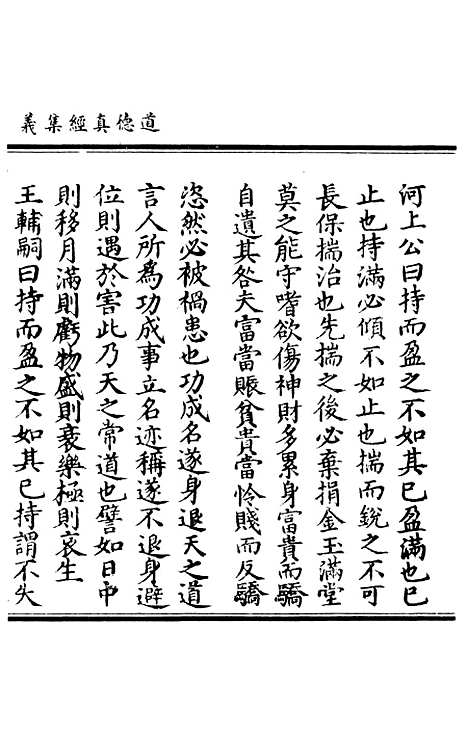 道德真經集義
河上公曰持而盈之不如其已盈滿也已
止也持滿必傾不如止也揣而銳之不可
長保揣治也先揣之後必棄捐金玉滿堂
莫之能守嗜欲傷神財多累身富貴而驕
自遺其咎夫富當賑貧貴當怜賤而反驕
恣然必被禍患也功成名遂身退天之道
言人所為功成事立名迹稱遂不退身避
位則遇於害此乃天之常道也譬如日中
則移月滿則虧物盛則衰樂極則哀生
王輔嗣曰持而盈之不如其已持謂不失